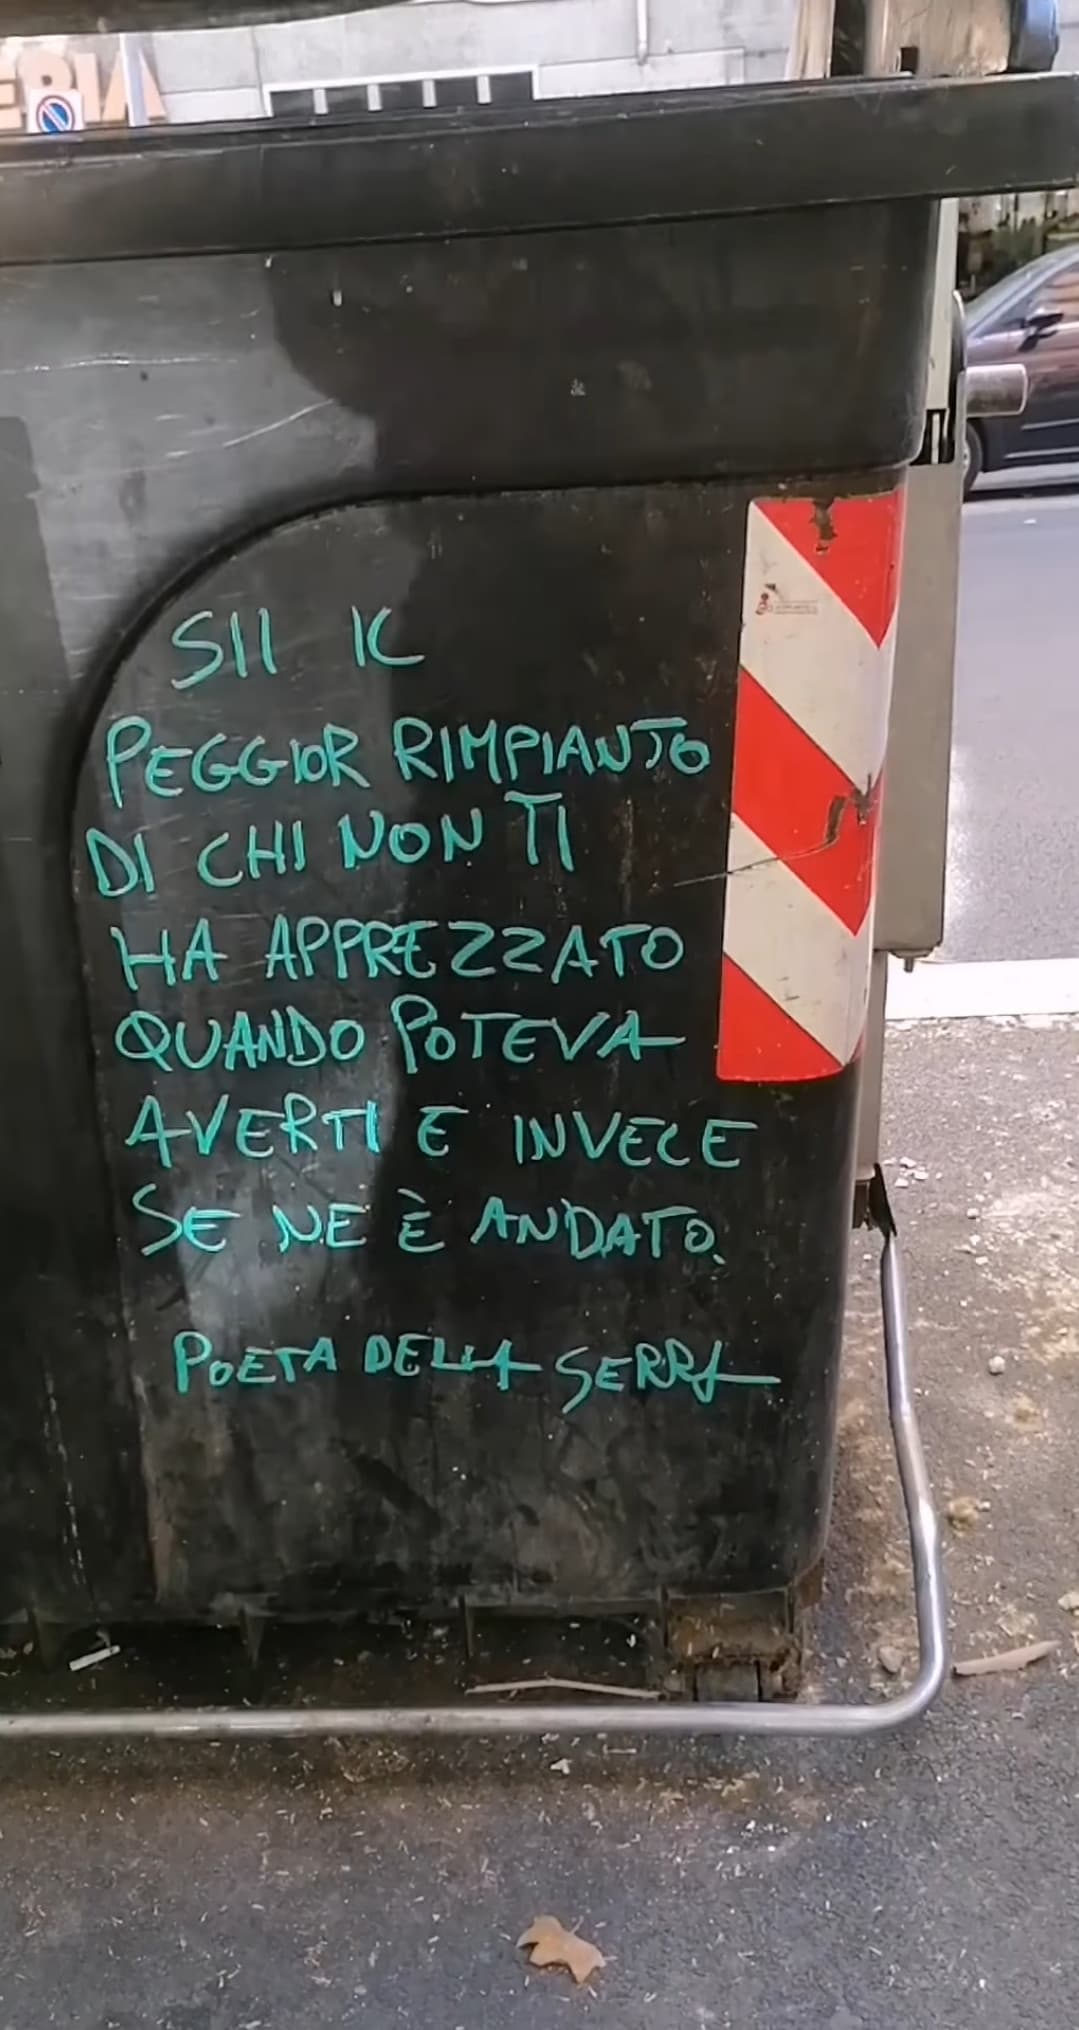 ERIA
SII IL
PEGGIOR RIMPIANTO
DI CHI NON TI
HA APPREZZATO
QUANDO POTEVA
AVERTI E INVECE
SE NE È ANDATO.
POETA DELLA SERRA